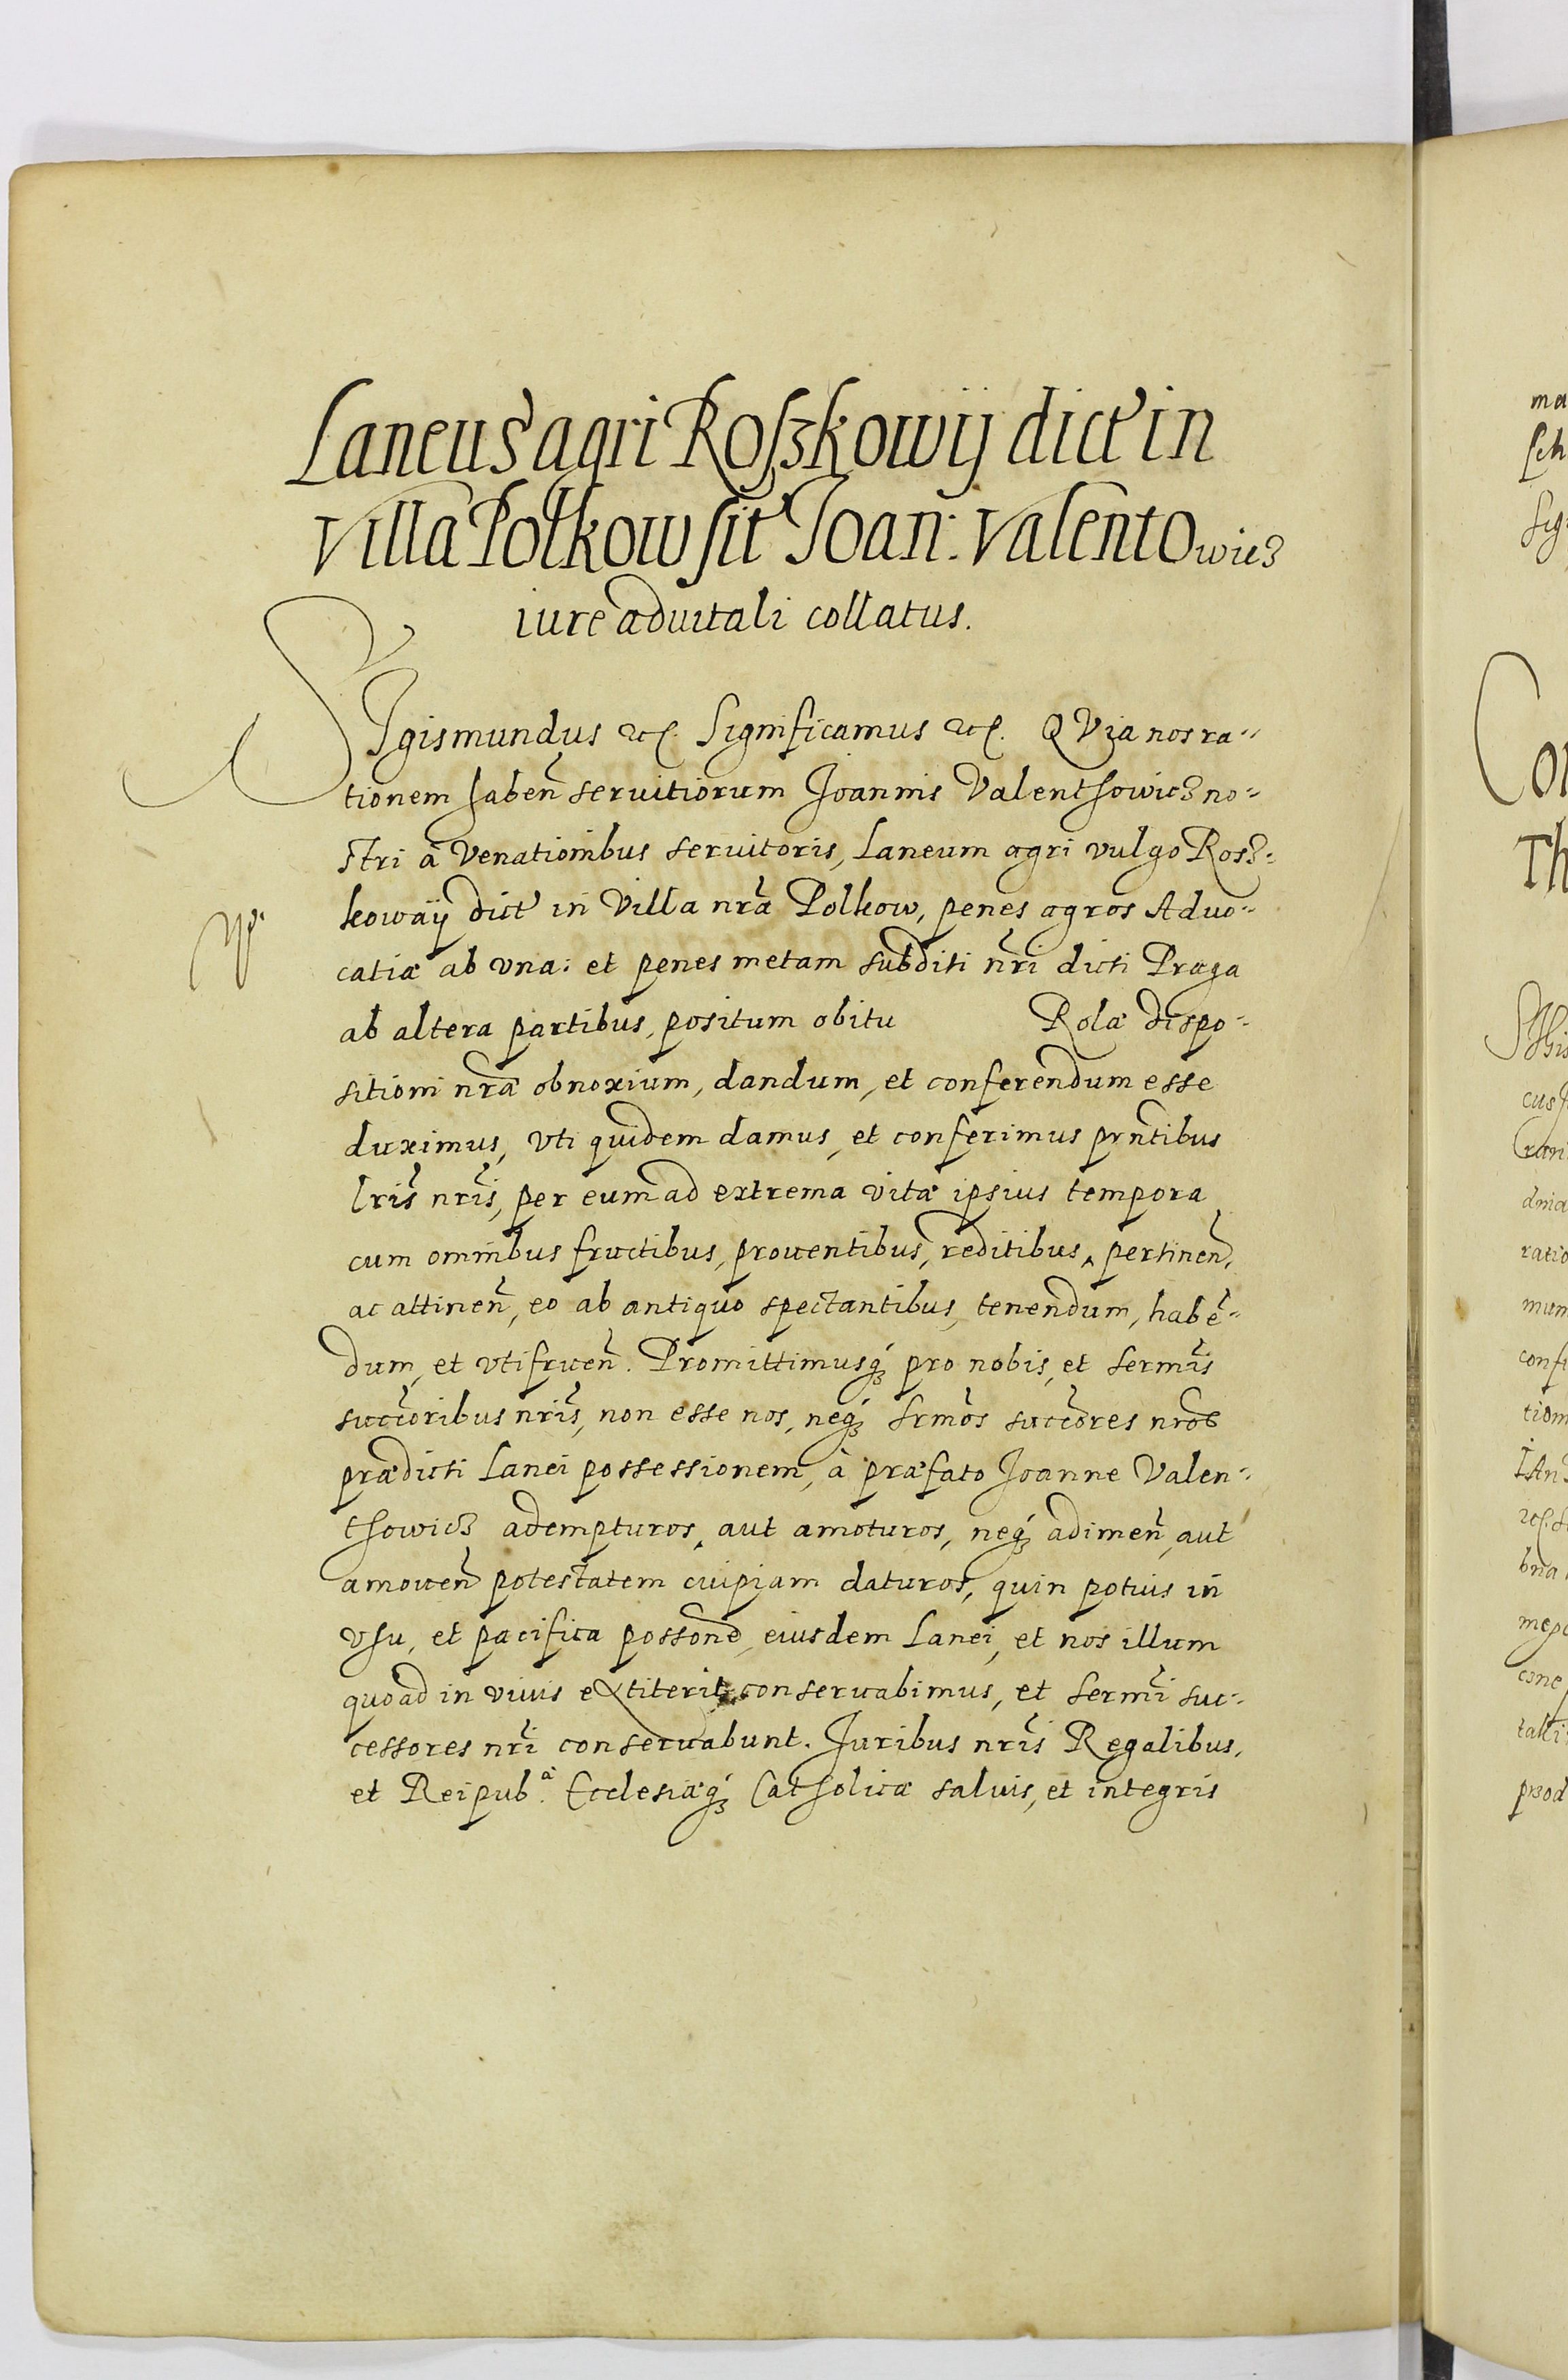 Laneus agri Roszkowij dict in
villa Polkow sit Joan: Valentowicz
iure aduitali collatus.
SIgismundus etc. Significamus etc. QVia nos ra-
tionem haben̄ seruitiorum Joannis Valenthowicz no-
stri à Venationibus seruitoris, Laneum agri vulgo Rosz-
kowaÿ dict in Villa nr̄a Polkow, penes agros Aduo-
catiæ ab vna: et penes metam subditi nr̄i dicti Praga
ab altera partibus, positum obitu Rolæ dispo-
sitioni nr̄æ obnoxium, dandum, et conferendum esse
duximus, vti quidem damus, et conferimus prn̄tibus
Lrīs nrīs, per eum ad extrema vitæ ipsius tempora
cum omnibus fructibus, prouentibus, reditibus, pertinen̄,
ac attinen̄, eo ab antiquo spectantibus, tenendum, habē-
dum, et vtifruen̄. Promittimusq́ꝫ pro nobis, et Sermīs
succōribus nrīs, non esse nos, neq́ꝫ Srmōs succōres nrōs
prædicti Lanei possessionem, à præfato Joanne Valen-
thowicz adempturos, aut amoturos, neq́ꝫ adimen̄, aut
amouen̄ potestatem cuipiam daturos, quin potius in
vsu, et pacifica possōne eiusdem Lanei, et nos illum
quoad in viuis extiterit conseruabimus, et Sermī suc-
cessores nrī conseruabunt. Juribus nrīs Regalibus,
et Reipub.à Ecclesiæq́ꝫ Catholicæ saluis, et integris